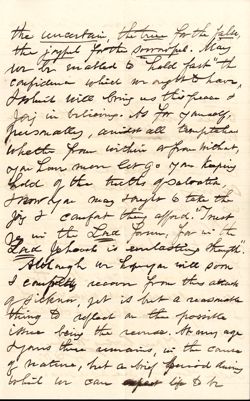 the uncertain, the true for the false,
the joyful for the sorrowful. May
we be enabled to "hold fast" the
confidence which we ought to have,
& which will bring us this peace &
joy in believing. As for yourself,
personally, amidst all temptation
whether from within or from without,
you have never let go your keeping
hold of the truths of salvation
& now you may & ought to take the
joy & comfort they afford. "Trust
ye in the Lord forever, for in the
Lord Jehovah is everlasting strength".
Although we hope you will soon
& completely recover from this attack
of sickness, yet is but a reasonable
thing to reflect on the possible
issue being the reverse. At my age
& yours there remains, in the course
of nature, but a brief period during
which we can expect life to be